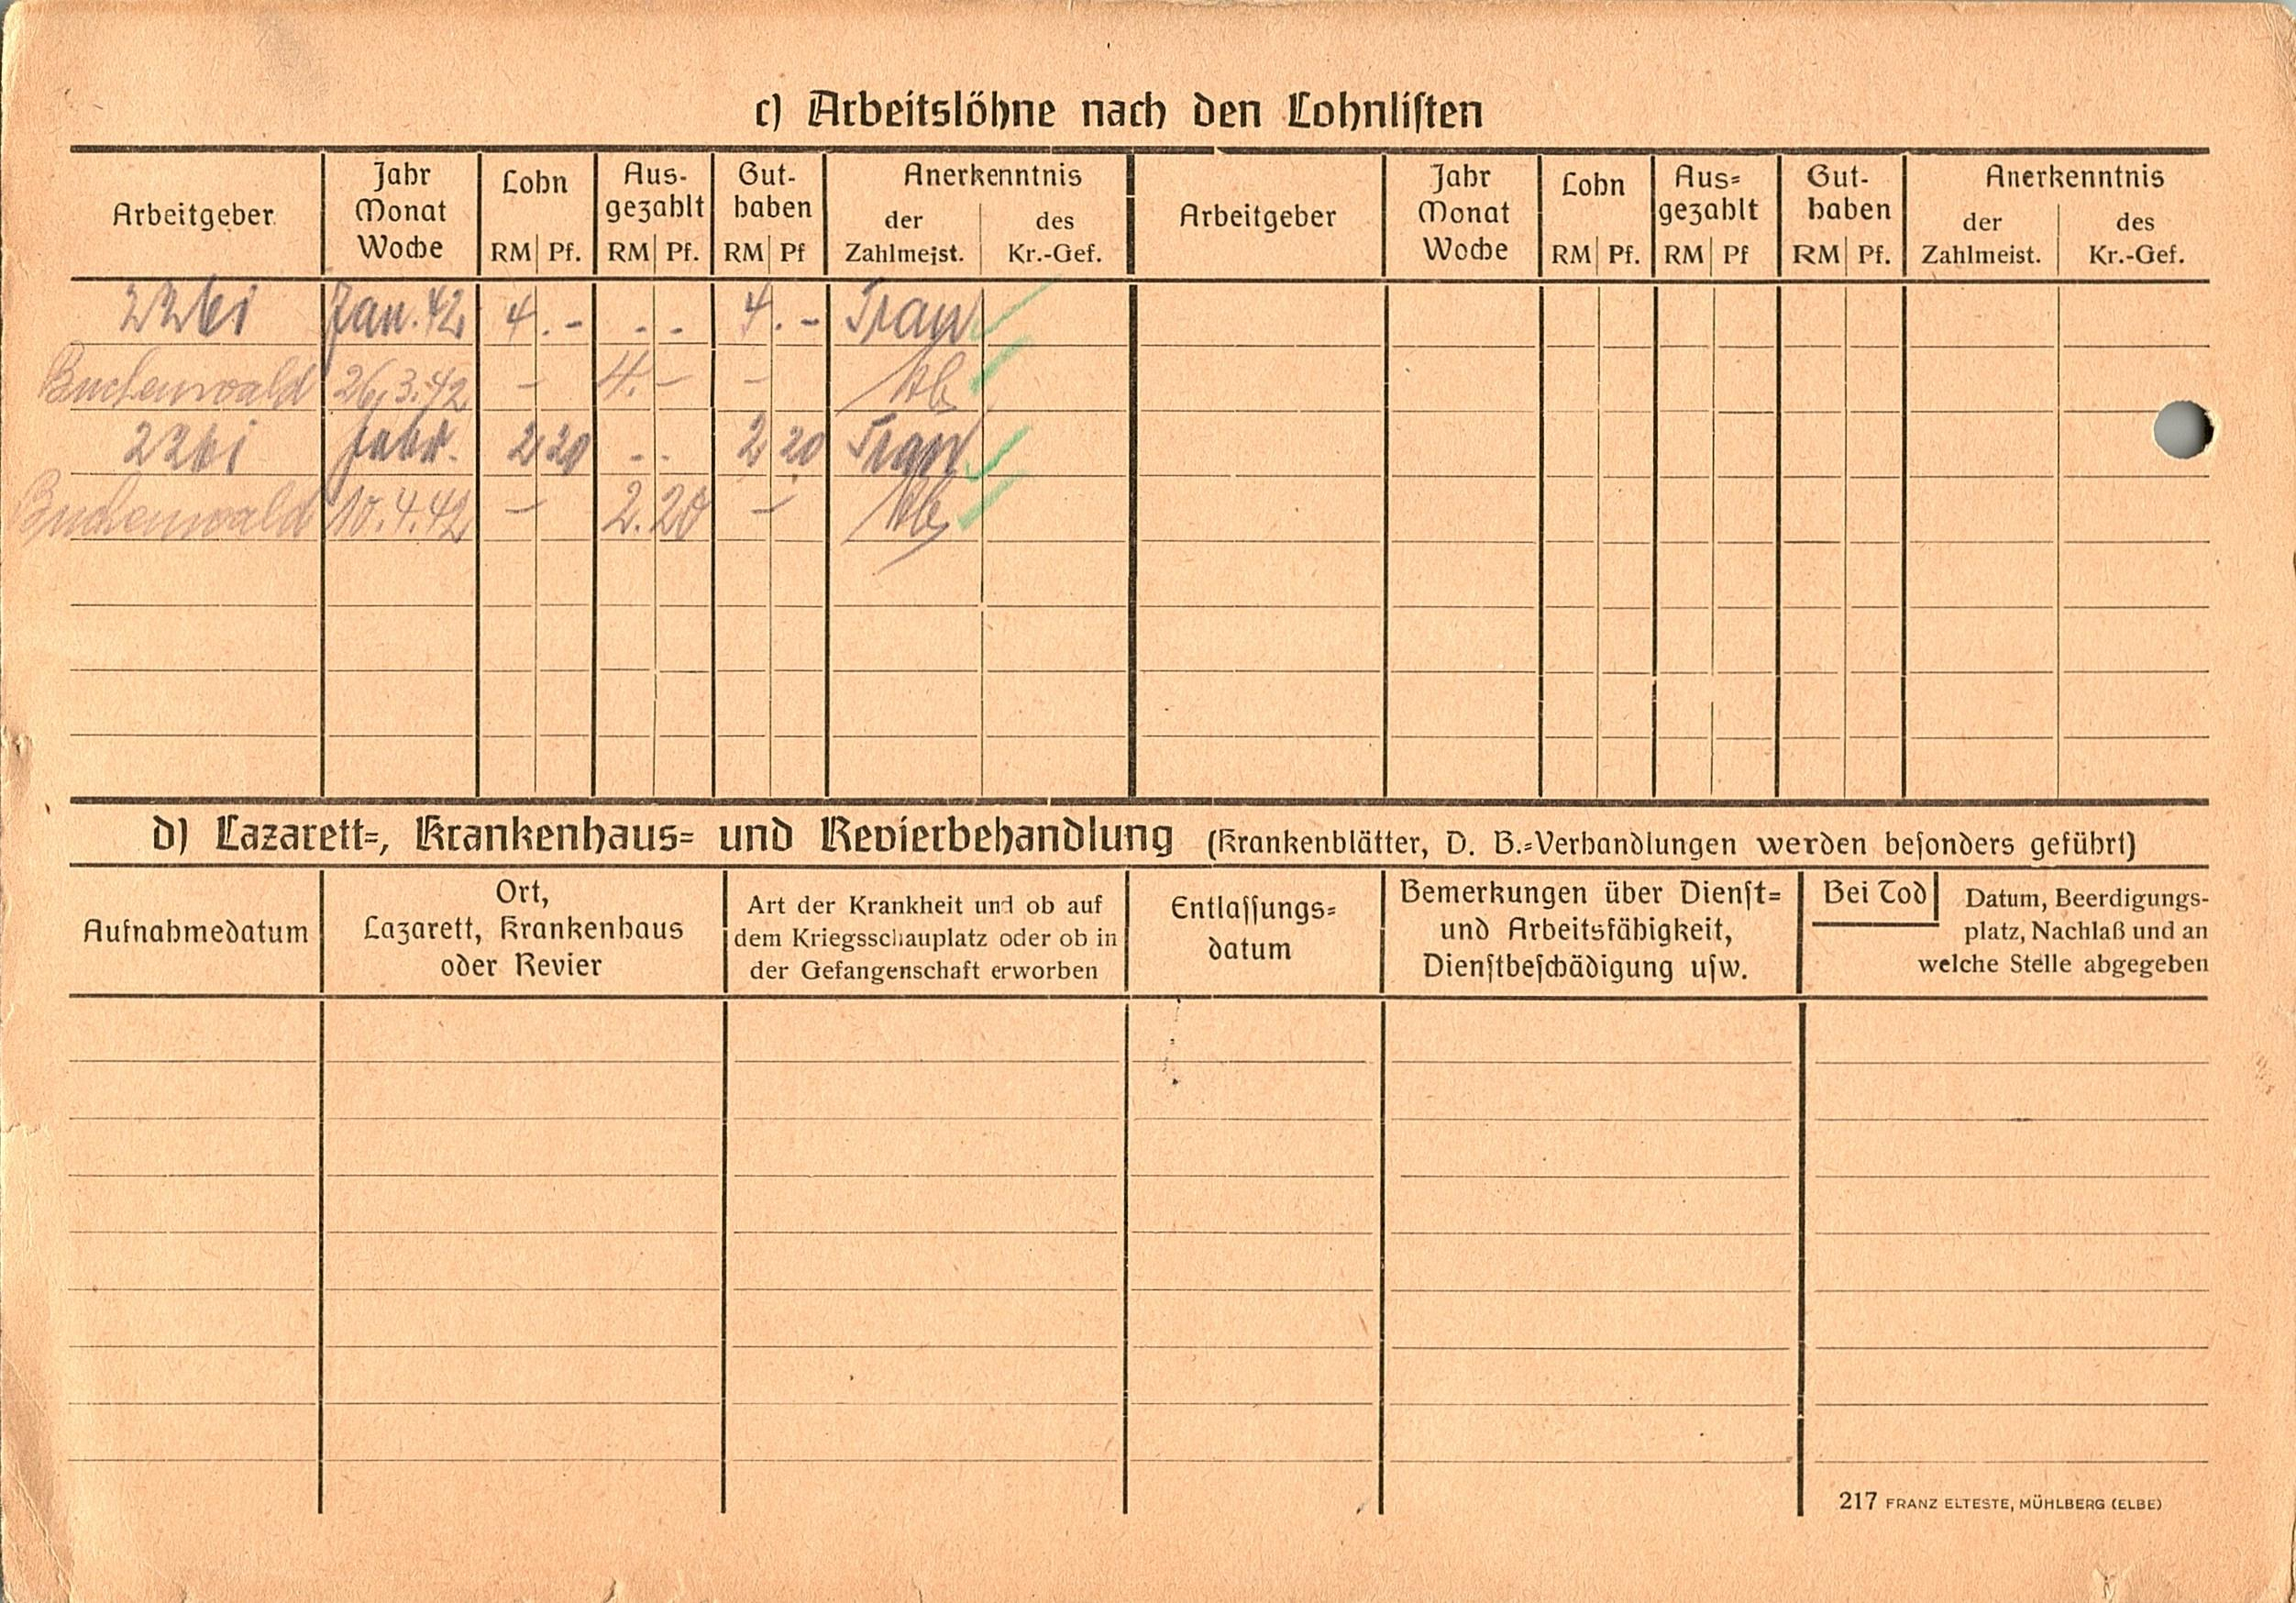 c) Arbeitslöhne nach den Lohnlisten
Arbeitgeber Jahr Monat Woche Lohn RM Pf. Ausgezahlt RM Pf. Guthaben RM Pf Anerkenntnis der Zahlmeist. des Kr.-Gef. Arbeitgeber Jahr Monat Woche Lohn RM Pf. Aus=gezahlt RM Pf Gut-haben RM Pf. Anerkenntnis der Zahlmeist. des Kr.-Gef.
Jan. 42 4.- .- 4.-
Buchenwald 26.3.42 - 4.- -
Febr. 2 20 .- 2 20
Buchenwald 10.4.42 - 2.20 -
d) Lazarett=, Krankenhaus= und Revierbehandlung (Krankenblätter, D. B.=Verhandlungen werden besonders geführt)
Aufnahmedatum
Ort,
Lazarett, Krankenhaus
oder Revier
Art der Krankheit und ob auf
dem Kriegsschauplatz oder ob in
der Gefangenschaft erworben
Entlassungs=
datum
Bemerkungen über Dienst=
und Arbeitsfähigkeit,
Dienstbeschädigung usw.
Bei Tod Datum, Beerdigungs-
platz, Nachlaß und an
welche Stelle abgegeben
217 FRANZ ELTESTE, MÜHLBERG (ELBE)